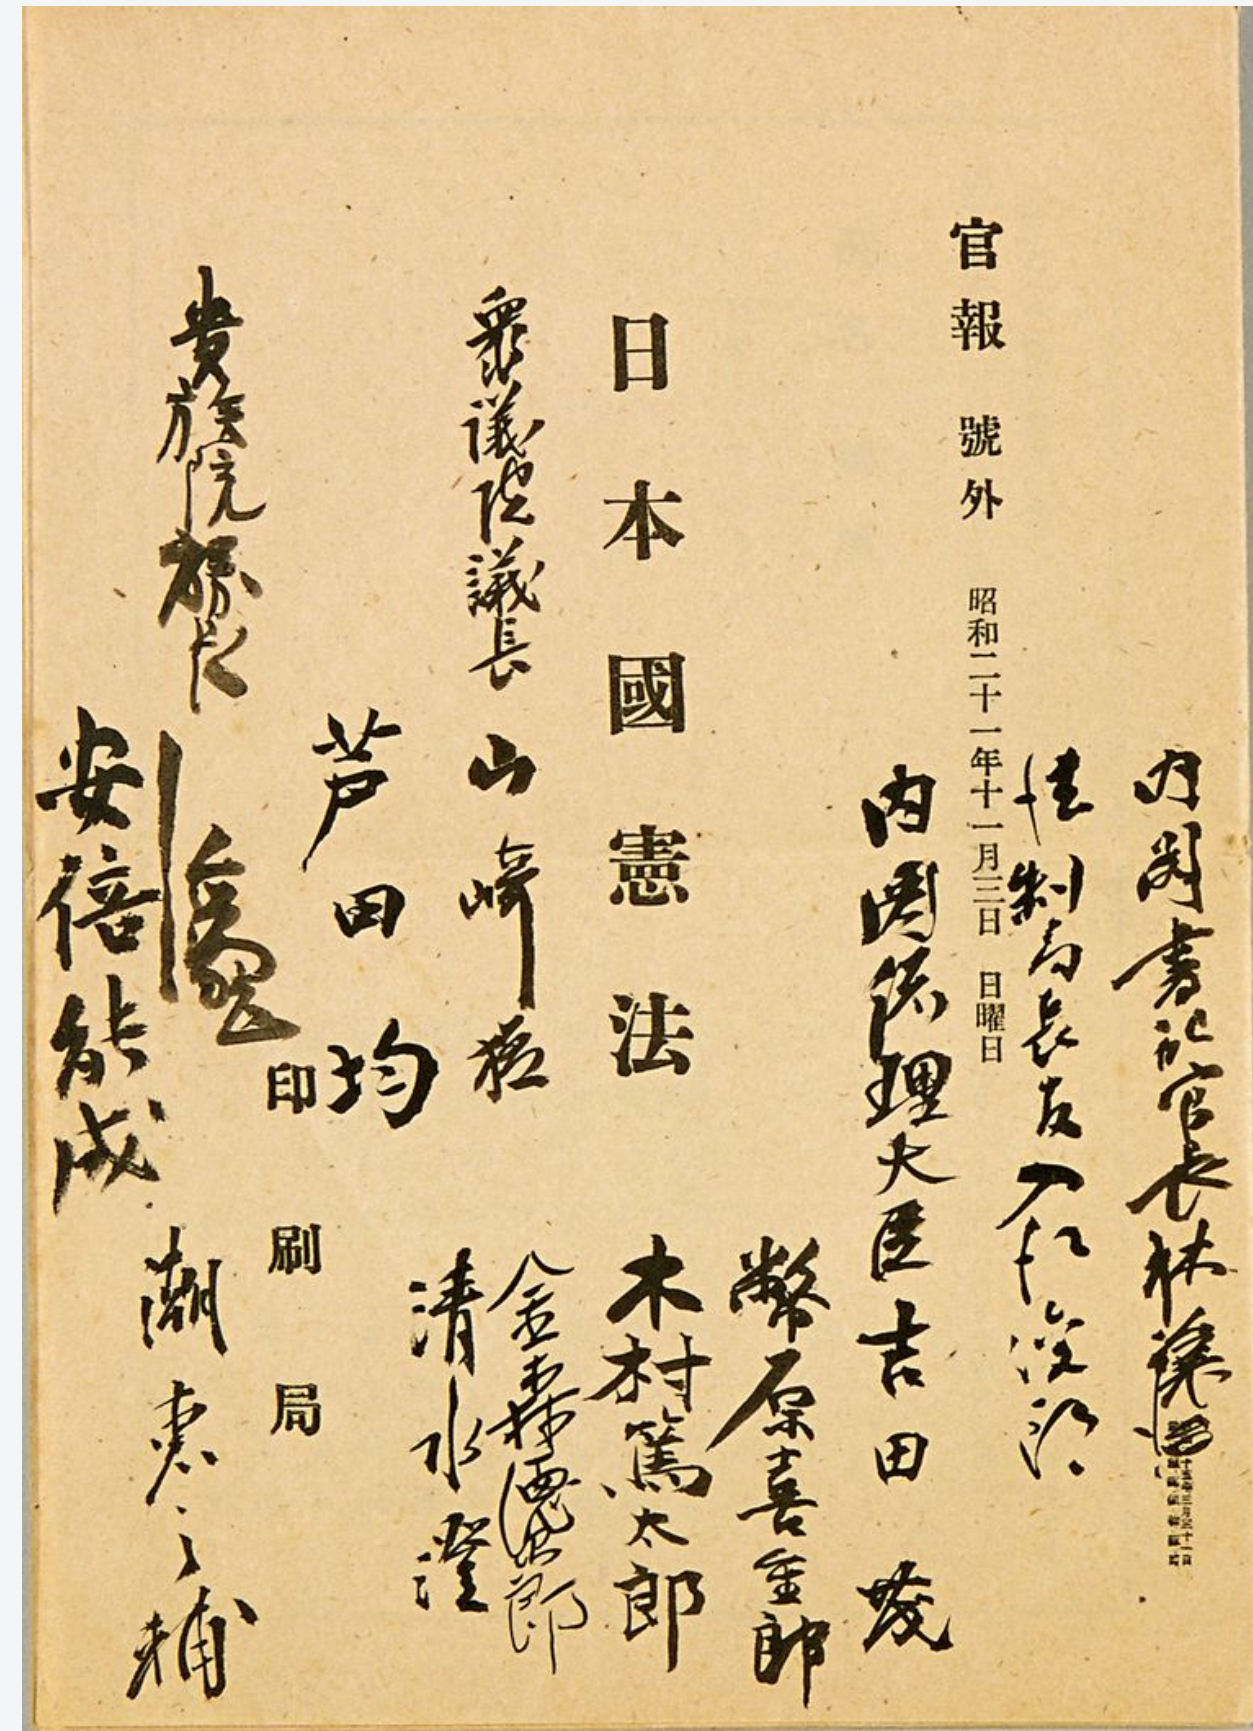 内閣書記官長 林譲治
法制局長官 入江俊郎
官報 號外 昭和二十一年十一月三日 日曜日
内閣総理大臣 吉田茂
幣原喜重郎
日本國憲法
木村篤太郎
衆議院議長 山崎猛
金森德次郎
清水澄
芦田均
印刷局
貴族院議長
安倍能成
潮恵之輔